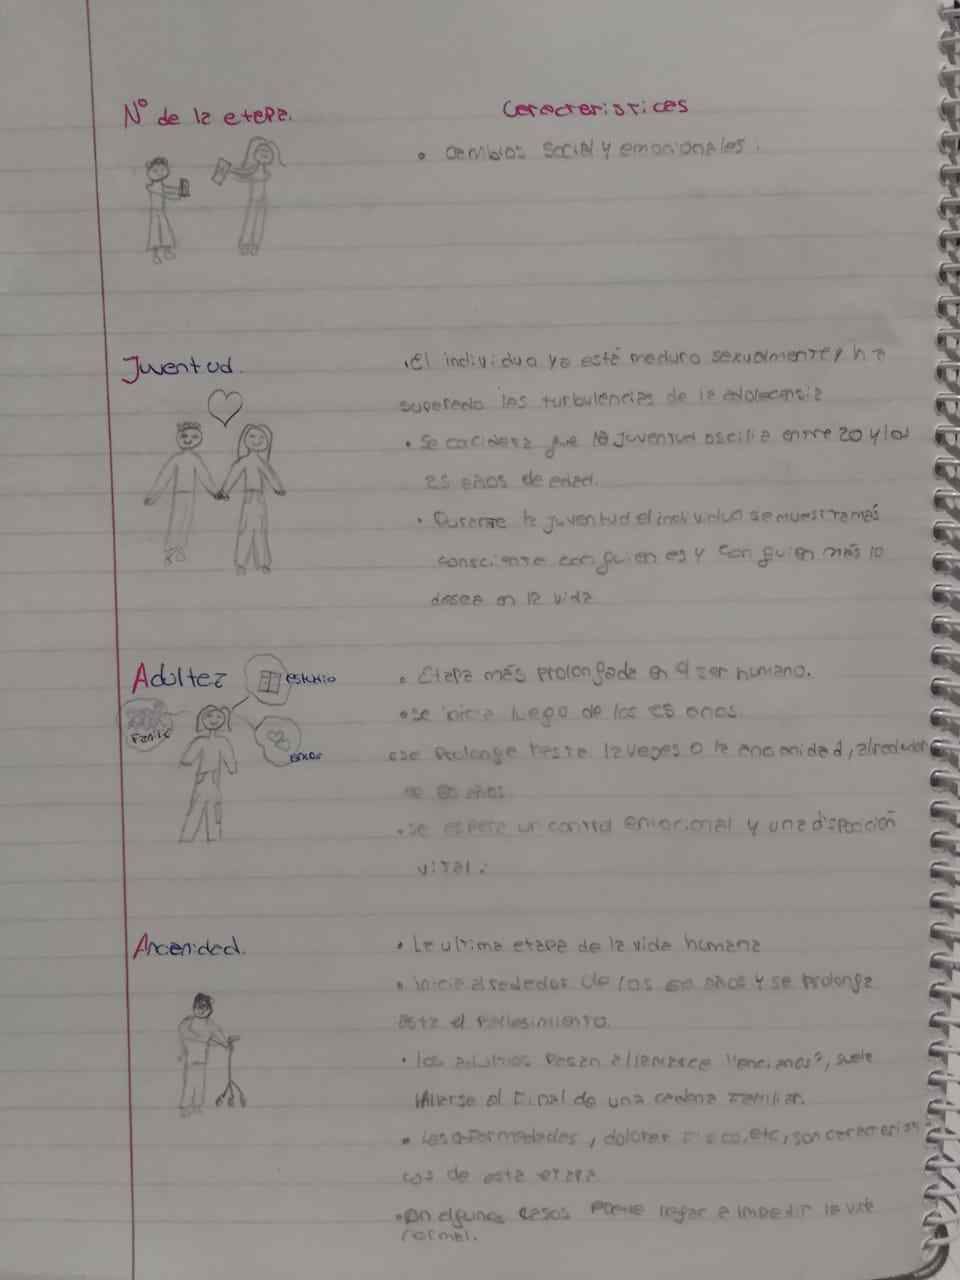 N° de la etapa. Caracteristicas
• cambios social y emocionales.
Juventud.
• El individuo ya esté maduro sexualmente y ha
superado las turbulencias de la adolecencia
• Se considera que la juventud oscila entre 20 y los
25 años de edad.
• Durante la juventud el individuo se muestra más
consciente con quien es y con quien más lo
desea en la vida
Adultez
estudio
Familia
amor
• Etapa más prolongada en el ser humano.
• se inicia luego de los 25 anos.
• se prolonga hasta la vegez o la ancianidad, alrededor
de 60 años.
• se espera un control emocional y una disposición
vital.
Ancenidad.
• La ultima etapa de la vida humana
• inicia alrededor de los 60 años y se prolonga
asta el
• los adultos pasan a llamarse "ancianos", suele
al final de una cadena familiar.
• las enformedades, dolores fisico, etc, son caracteristi
cas de esta etapa
• en algunos casos puede llegar a impedir la vida
normal.